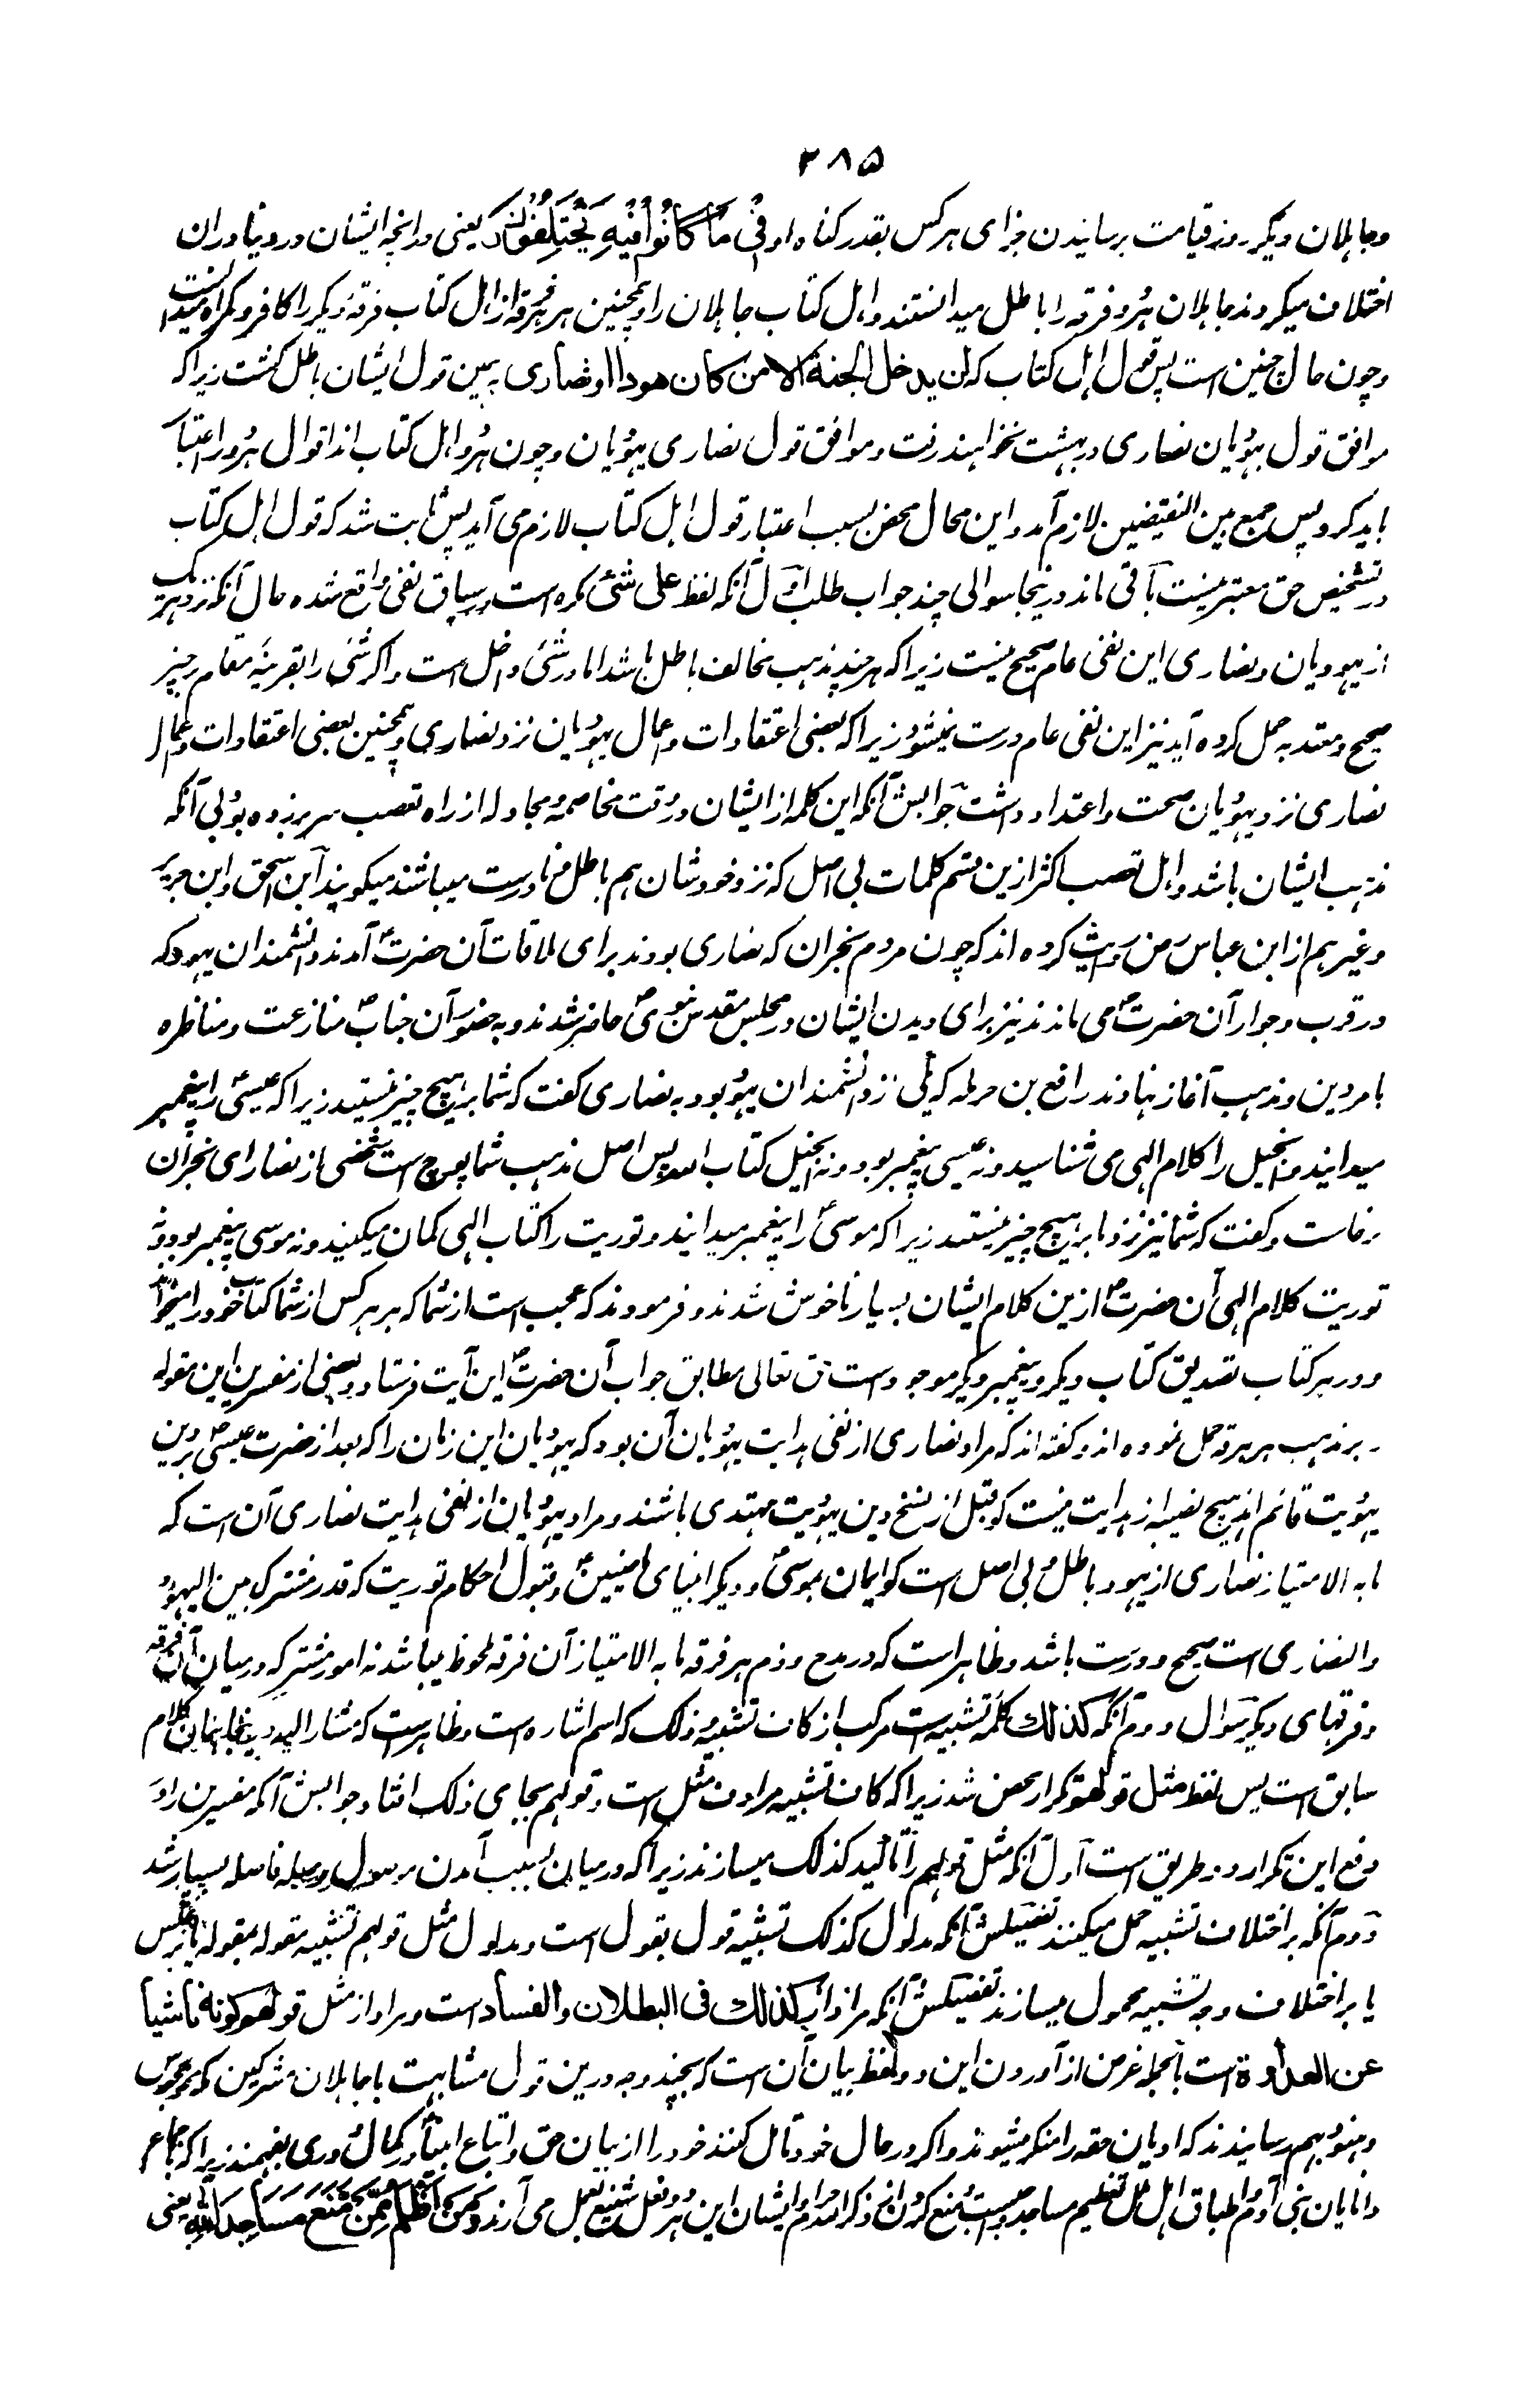 ۲۸۵
وجاہلان دیگر روز قیامت برسانیدن جزای ہر کس بقدر گناہ او فِیْ مَا کَانُوْا فِیْهِ یَخْتَلِفُوْنَ یعنی در انچہ ایشان در دنیا دران
اختلاف میکردند جاہلان ہر دو فرقہ را باطل میدانستند و اہل کتاب جاہلان را و ہمچنین ہر فرقہ از اہل کتاب فرقۂ دیگر را کافر و گمراہ میدانست
و چون حال چنین است پس قول اہل کتاب کہ لن یدخل الجنة الا من کان هودا او نصاری بہمین قول ایشان باطل گشت زیرا کہ
موافق قول یہودیان نصاری در بہشت نخواہند رفت و موافق قول نصاری یہودیان و چون ہر دو اہل کتاب اند اقوال ہر دو را اعتبار
باید کرد پس جمع بین النقیضین لازم آمد و این محال محض بسبب اعتبار قول اہل کتاب لازم می آید پس ثابت شد کہ قول اہل کتاب
در تشخیص حق معتبر نیست باقی ماند درینجا سوالی چند جواب طلب اول آنکہ لفظ علی شئ نکرہ است در سیاق نفی واقع شدہ حال آنکہ نزد ہر یک
از یہودیان و نصاری این نفی عام صحیح نیست زیرا کہ ہر چند مذہب مخالف باطل باشد اما در شئ داخل است و اگر شئ را بقرینۂ مقام بر چیز
صحیح و معتد بہ حمل کردہ آید نیز این نفی عام درست نمیشود زیرا کہ بعضی اعتقادات و اعمال یہودیان نزد نصاری و ہمچنین بعضی اعتقادات و اعمال
نصاری نزد یہودیان صحت و اعتداد داشت جوابش آنکہ این کلمہ از ایشان در وقت مخاصمہ و مجادلہ از راہ تعصب سر بر زدہ بود بی آنکہ
مذہب ایشان باشد و اہل تعصب اکثر ازین قسم کلمات بی اصل کہ نزد خود شان ہم باطل و نادرست میباشند میگویند ابن اسحق و ابن جریر
و غیر ہم از ابن عباس رض روایت کردہ اند کہ چون مردم نجران کہ نصاری بودند برای ملاقات آن حضرت ؐ آمدند دانشمندان یہود کہ
در قرب و جوار آن حضرت ؐ می ماندند نیز برای دیدن ایشان در مجلس مقدس نبوی ؐ حاضر شدند و بہ حضور آن جناب ؐ منازعت و مناظرہ
بامر دین و مذہب آغاز نہادند رافع بن حرملہ کہ یکی از دانشمندان یہود بود بہ نصاری گفت کہ شما بر ہیچ چیز نیستید زیرا کہ عیسی ؑ را پیغمبر
میدانید و انجیل را کلام الہی می شناسید و نہ عیسی پیغمبر بود و نہ انجیل کتاب اللہ پس اصل مذہب شما پوچ است شخصی از نصارای نجران
برخاست و گفت کہ شما نیز نزد ما بر ہیچ چیز نیستید زیرا کہ موسی ؑ را پیغمبر میدانید و توریت را کتاب الہی گمان میکنید و نہ موسی پیغمبر بود و نہ
توریت کلام الہی آن حضرت ؐ ازین کلام ایشان بسیار ناخوش شدند و فرمودند کہ عجب است از شما کہ ہر ہر کس از شما کتاب خود را میخواند
و در ہر کتاب تصدیق کتاب دیگر و پیغمبر دیگر موجود است حق تعالی مطابق جواب آن حضرت ؐ این آیت فرستاد و بعضی از مفسرین این مقولہ
بر مذہب ہر فرقہ حمل نمودہ اند و گفتہ اند کہ مراد نصاری از نفی ہدایت یہودیان آن بود کہ یہودیان این زمان را کہ بعد از حضرت عیسی ؑ بر دین
یہودیت قائم اند ہیچ نصیبہ از ہدایت نیست گو قبل از نسخ دین یہودیت مہتدی باشند و مراد یہودیان از نفی ہدایت نصاری آن است کہ
مابہ الامتیاز نصاری از یہود باطل و بی اصل است گو ایمان بموسی ؑ و دیگر انبیای ماضیین ؑ و قبول احکام توریت کہ قدر مشترک بین الیہود
والنصاری است صحیح و درست باشد و ظاہر است کہ در مدح و ذم ہر فرقہ مابہ الامتیاز آن فرقہ ملحوظ میباشد نہ امور مشترکہ درمیان آن فرقہ
و فرقہای دیگر سوال دوم آنکہ کذلك کلمۂ تشبیہ است مرکب از کاف تشبیہ و ذلک کہ اسم اشارہ است و ظاہر است کہ مشار الیہ درینجا ہمان کلام
سابق است پس لفظ مثل قولهم تکرار محض شد زیرا کہ کاف تشبیہ مرادف مثل است و قولہم بجای ذلک افتاد جوابش آنکہ مفسرین را در
دفع این تکرار دو طریق است اول آنکہ مثل قولہم را تاکید کذلک میسازند زیرا کہ درمیان بسبب آمدن موصول و صلہ فاصلہ بسیار شد
دوم آنکہ بر اختلاف تشبیہ حمل میکنند تفصیلش آنکہ مدلول کذلک تشبیہ قول بقول است و مدلول مثل قولہم تشبیہ مقولہ بمقولہ یا برعکس
یا بر اختلاف وجہ تشبیہ محمول میسازند تفصیلش آنکہ مراد از کذلك فی البطلان والفساد است و مراد از مثل قولهم کونه ناشیا
عن العداوة است بالجملہ غرض از آوردن این دو لفظ بیان آن است کہ بچند وجہ درین قول مشابہت با جاہلان مشرکین کہ مجوس
و ہنود بہم رسانیدند کہ ادیان حقہ را منکر میشوند و اگر در حال خود تامل کنند خود را از بیان حق و اتباع انبیا در کمال دوری بفہمند زیرا کہ باجماع
دانایان بنی آدم و اطباق اہل ملل تعظیم مساجد واجب است و منع کردن از ذکر خدا حرام و ایشان این ہر دو فعل شنیع بعمل می آرند وَمَنْ اَظْلَمُ مِمَّنْ مَّنَعَ مَسَاجِدَ اللّٰهِ یعنی